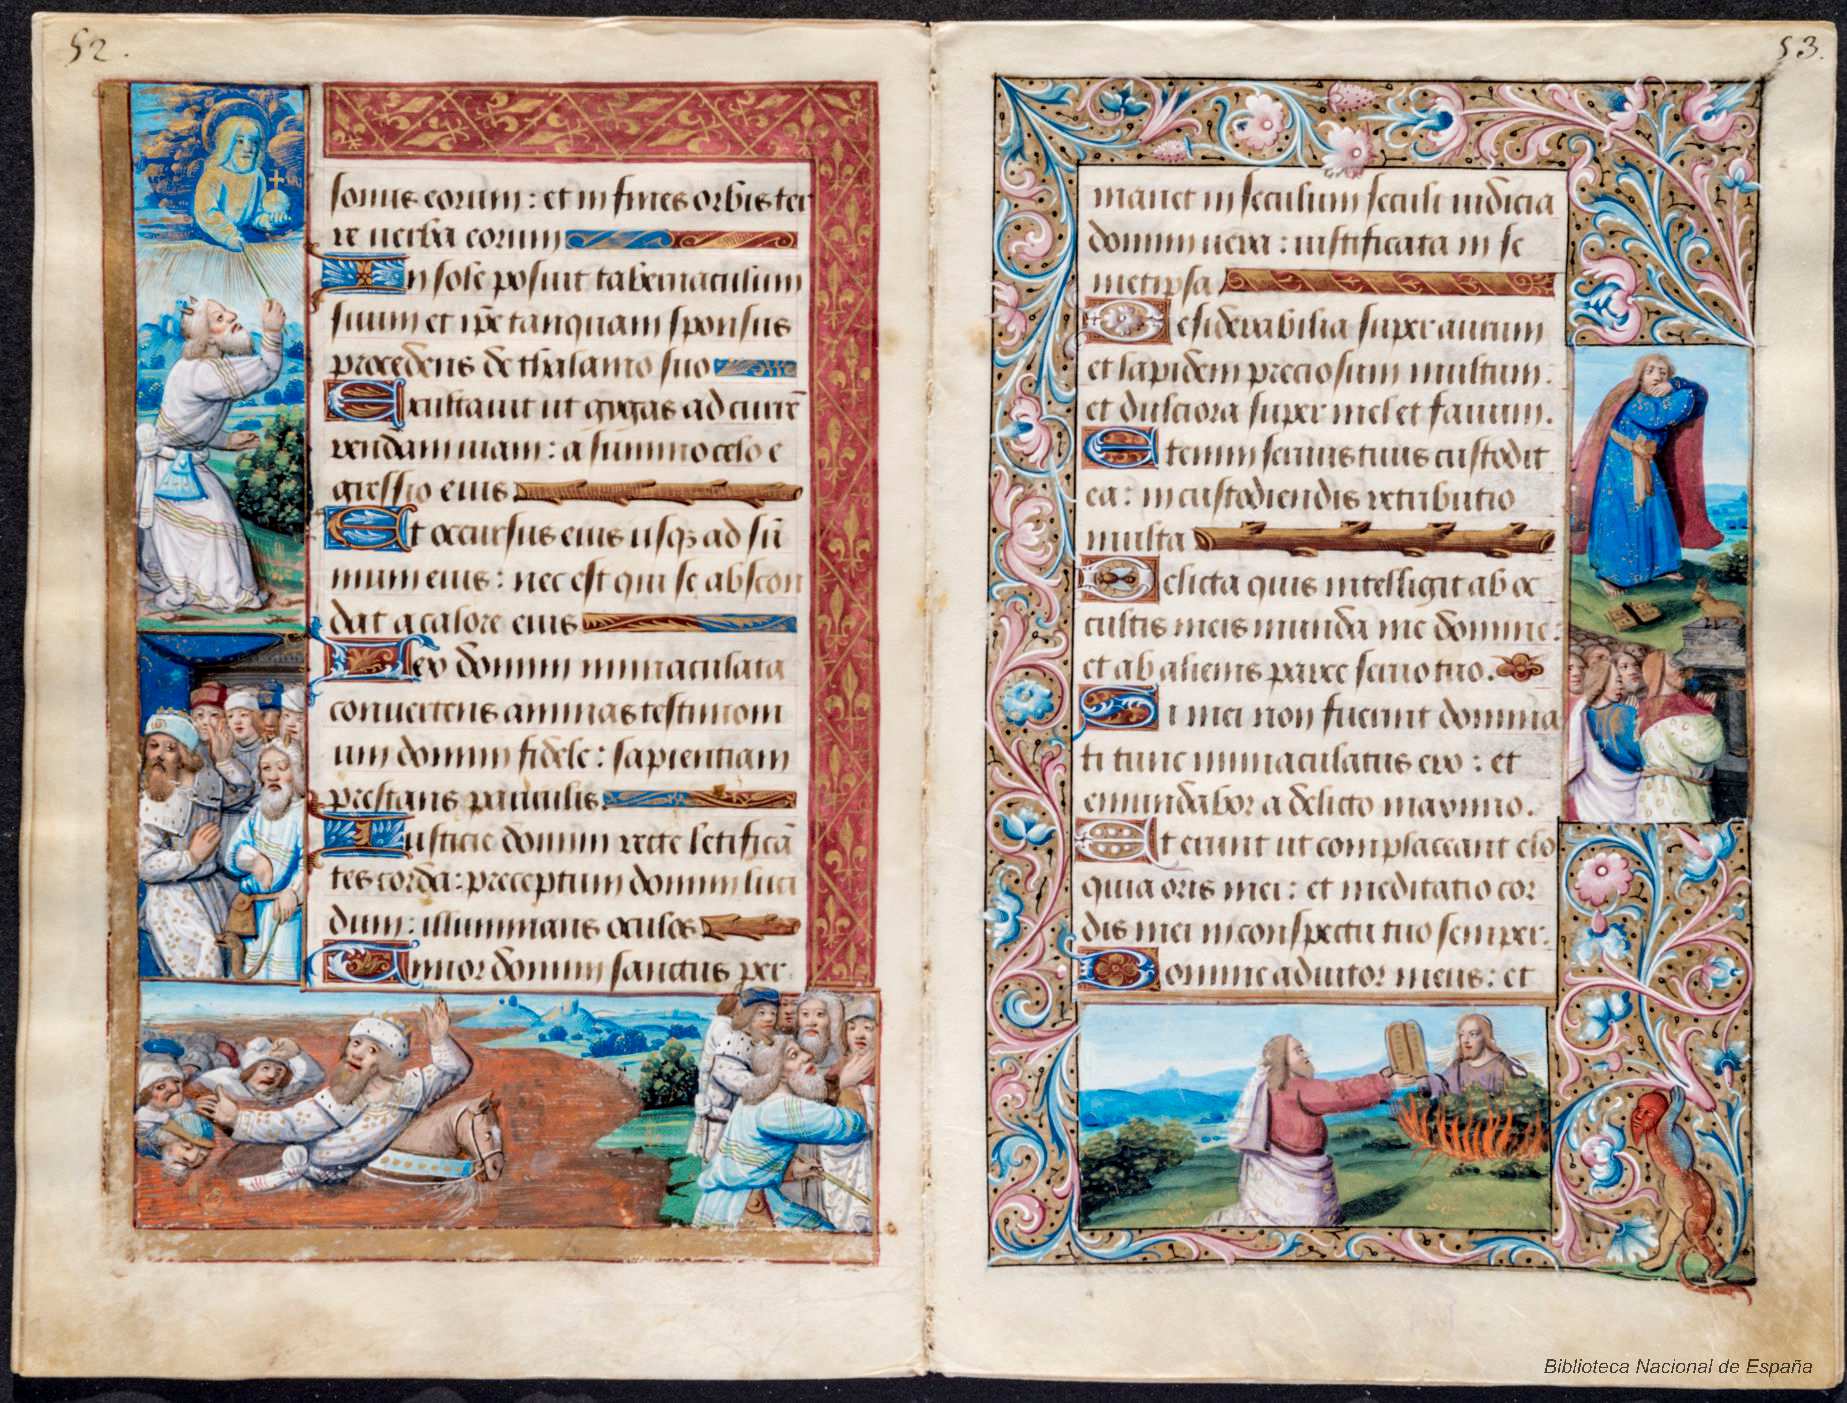 52.
sonus eorum: et in fines orbis ter
re verba eorum
In sole posuit tabernaculum
suum et ip̄e tanquam sponsus
procedens de thalamo suo
Exultavit ut gygas ad currē
rendam viam: a summo celo e
gressio eius
Et occursus eius usqꝫ ad sū
mum eius: nec est qui se abscon
dat a calore eius
Lex domini immaculata
convertens animas testimoni
um domini fidele: sapientiam
prestans parvulis.
Iusticie domini recte letificā
tes corda: preceptum domini luci
dum: illuminans oculos
Timor domini sanctus per
53.
manet in seculum seculi iudicia
domini vera: iustificata in se
metipsa
Desiderabilia super aurum
et lapidem preciosum multum:
et dulciora super mel et favum.
Etenim servus tuus custodit
ea: in custodiendis retributio
multa
Delicta quis intelligit ab oc
cultis meis munda me domine:
et ab alienis parce servo tuo.
Si mei non fuerint domina
ti tunc immaculatus ero: et
emundabor a delicto maximo.
Et erunt ut complaceant elo
quia oris mei: et meditatio cor
dis mei in conspectu tuo semper.
Domine adiutor meus: et
Biblioteca Nacional de España